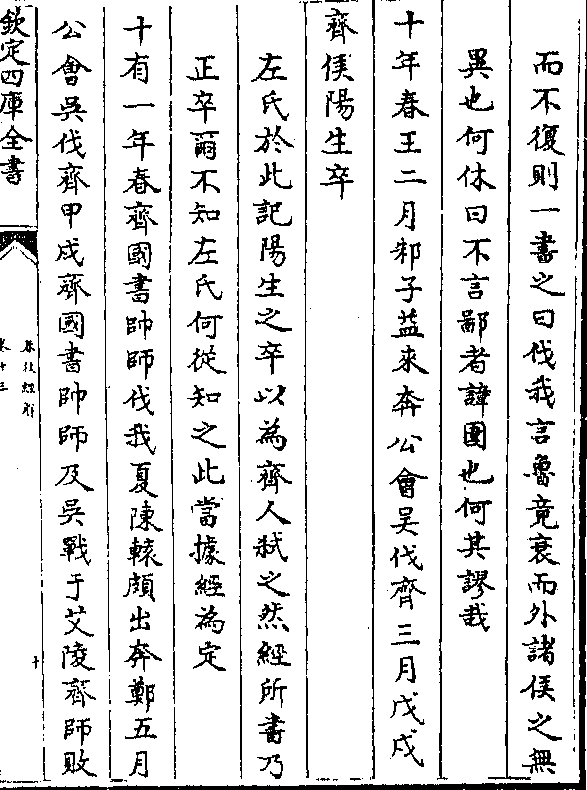 而不復則一書之曰伐我言魯竟衰而外諸侯之無
異也何休曰不言鄙者諱圍也何其謬哉
十年春王二月邾子益來奔公會吴伐齊三月戊戌
齊侯陽生卒
左氏於此記陽生之卒以為齊人弑之然經所書乃
正卒爾不知左氏何從知之此當據經為定
十有一年春齊國書帥師伐我夏陳轅頗出奔鄭五月
公會吴伐齊甲戌齊國書帥師及吴戰于艾陵齊師敗
欽定四庫全書
卷十三
十